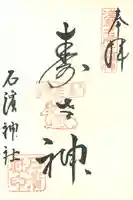 奉拜
壽老神
石濱神社